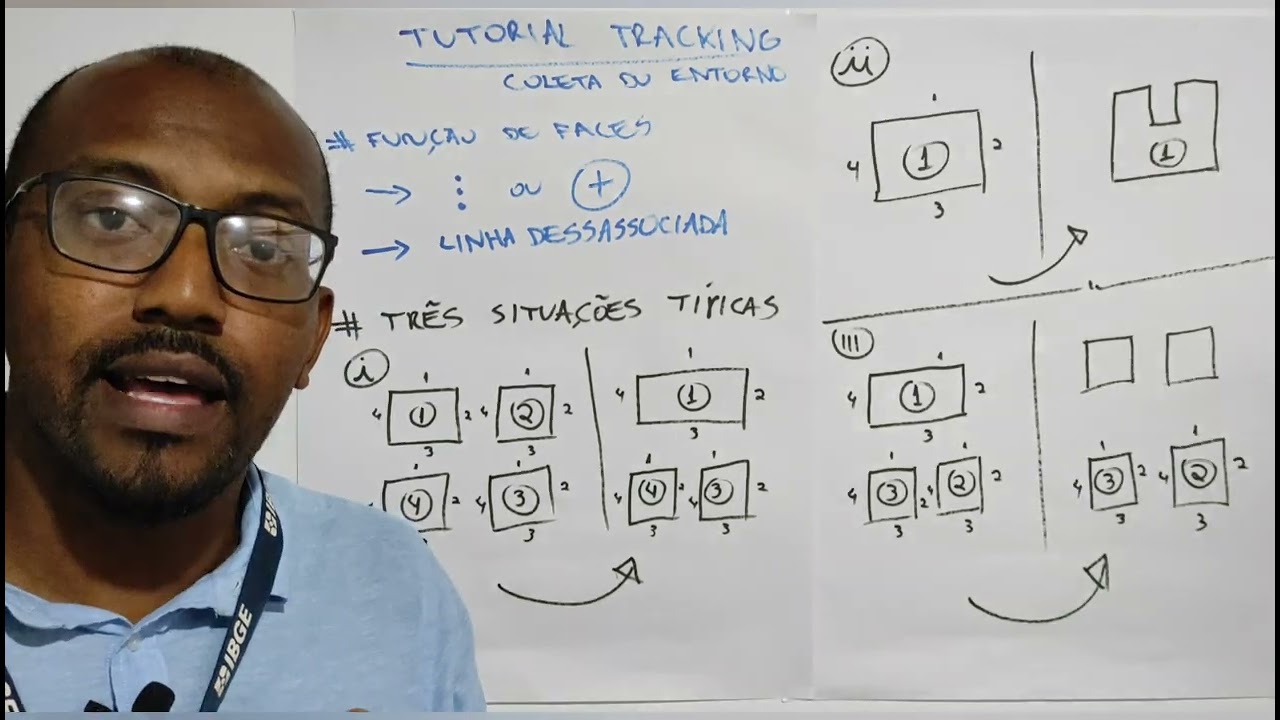 TUTORIAL TRACKING
COLETA DU ENTORNO
# FUNÇÃO DE FACES
→ ⋮ ou +
→ LINHA DESSASSOCIADA
# TRÊS SITUAÇÕES TÍPICAS
i
1 1
4 1 2 4 2 2
3 3
1
4 2 4 3 2
3
1
4 1 2
3
1 1
4 4 2 4 3 2
3 3
ii
1
4 1 2
3
1
III
1
4 1 2
3
1 1
4 3 2 4 2 2
3 3
1 1
4 3 2 4 2 2
3 3
IBGE